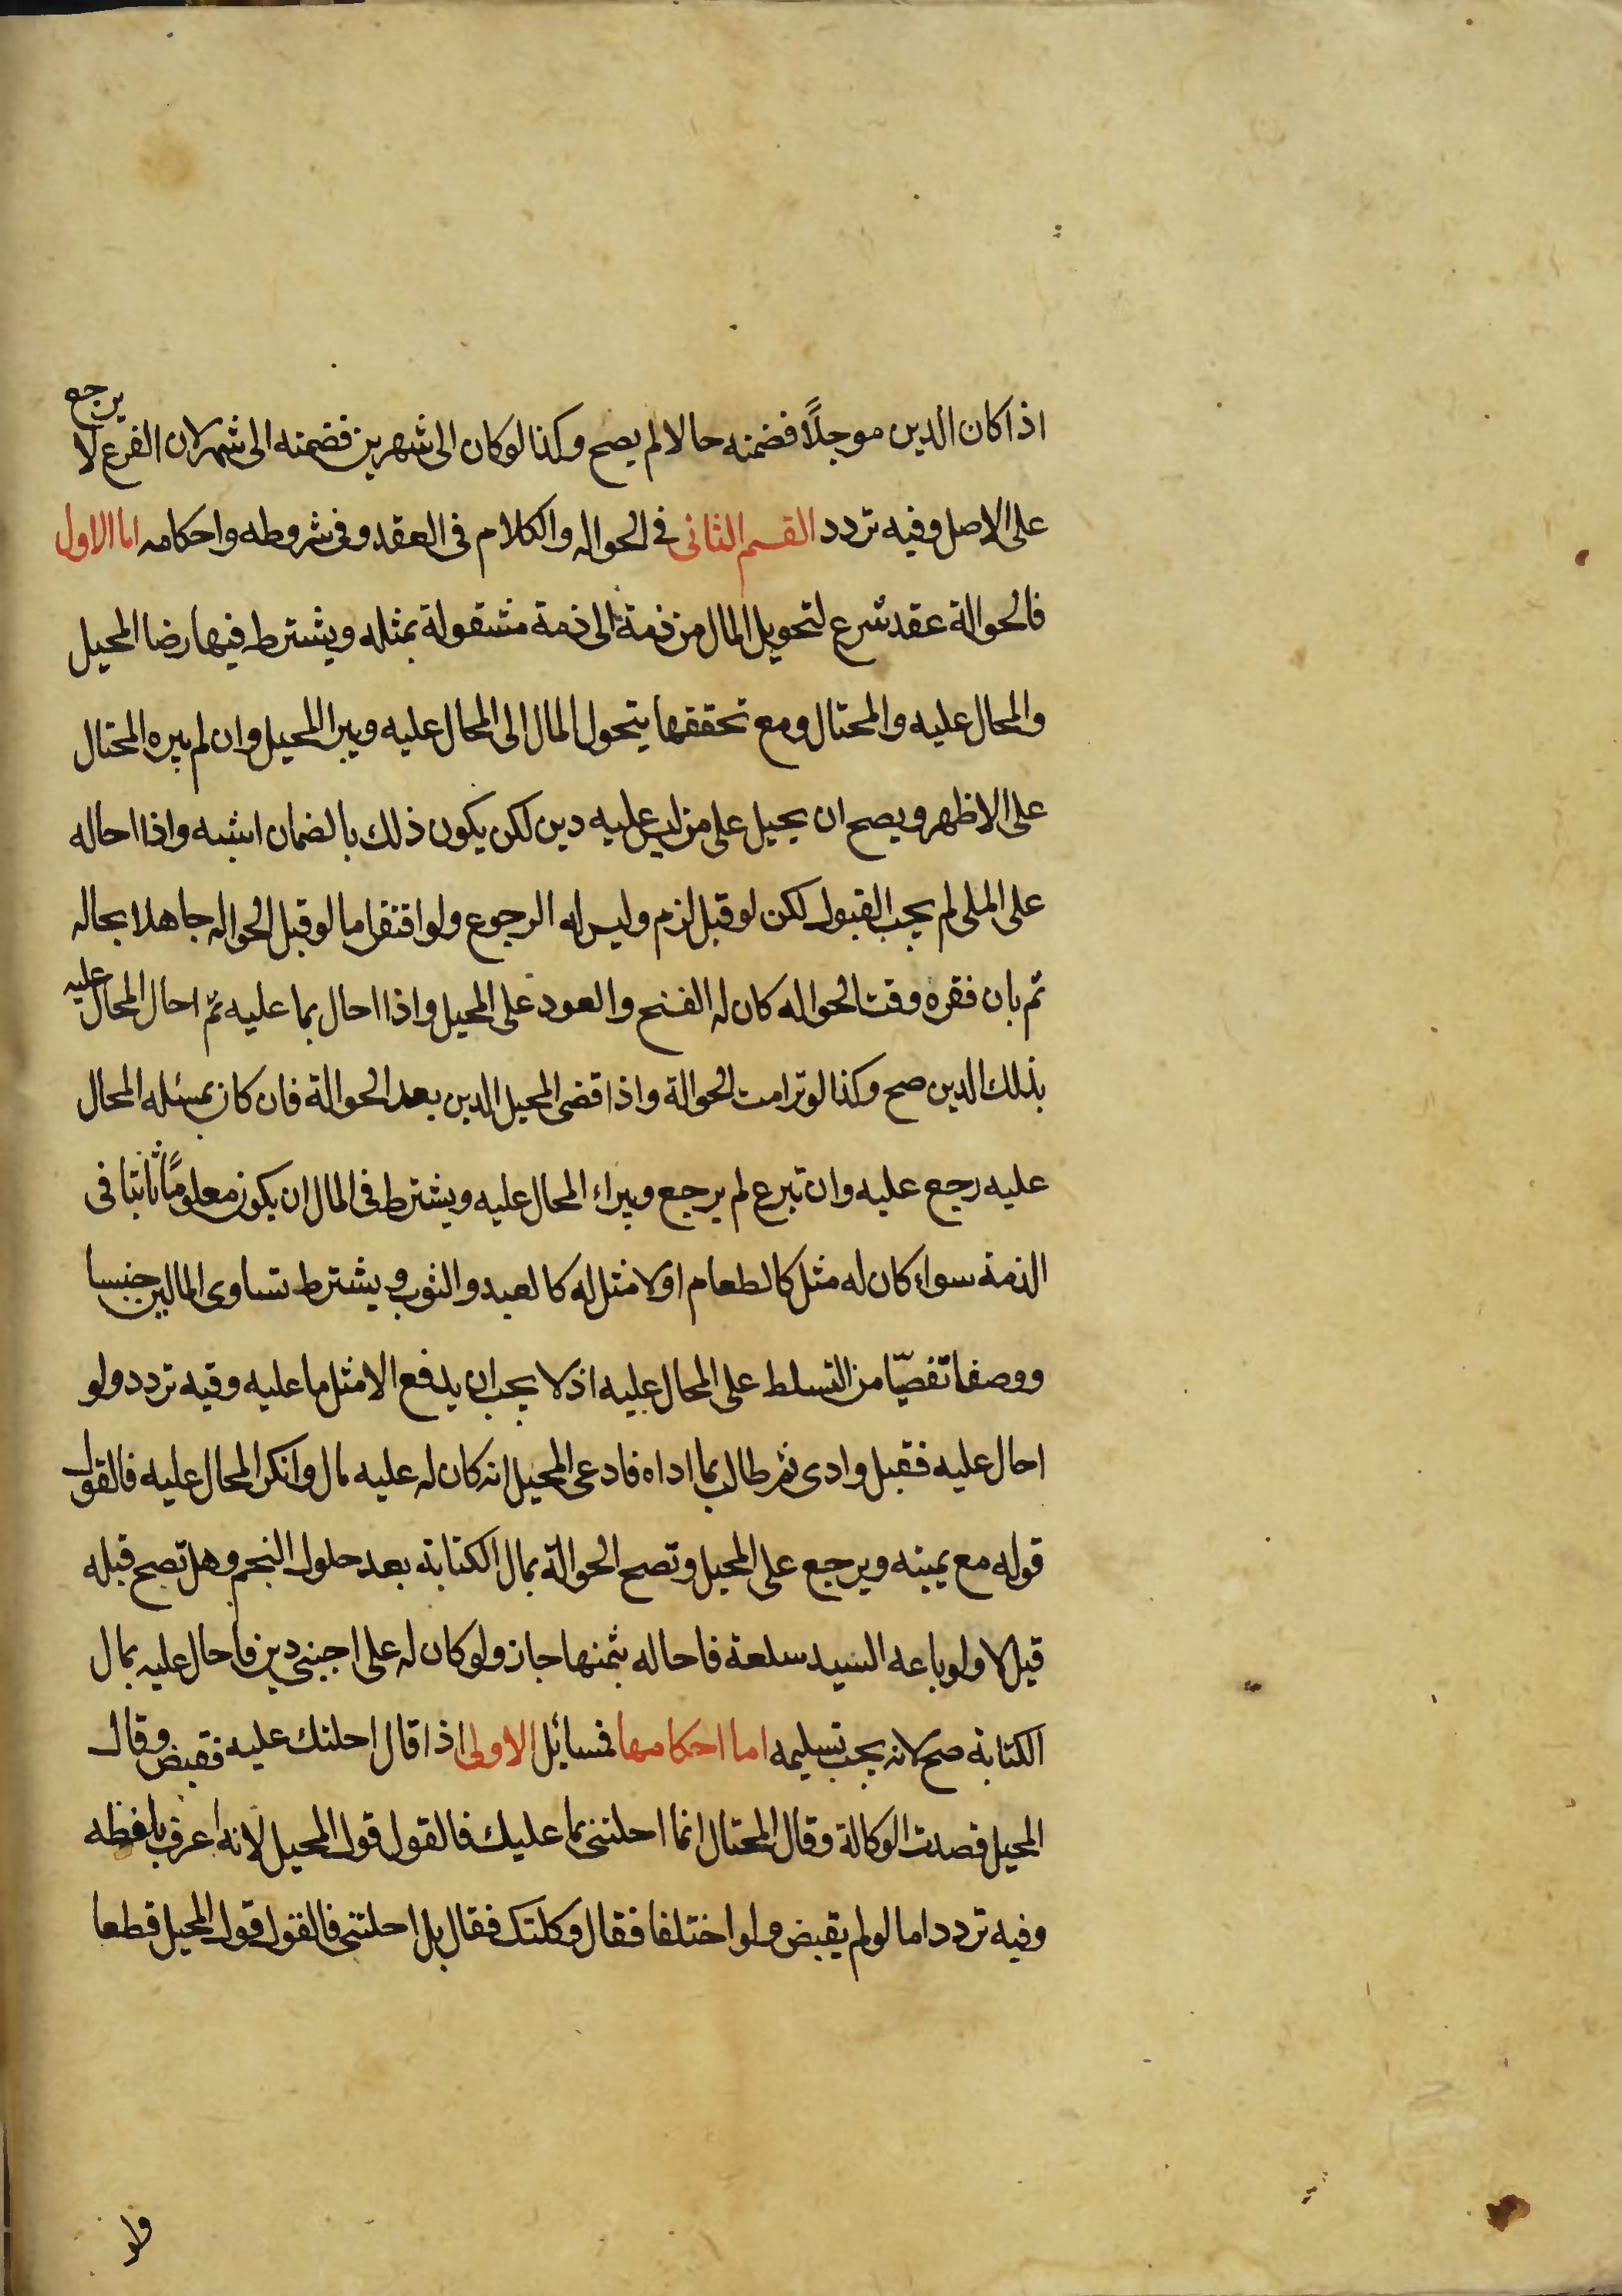 اذا كان الدين موجلاً فضمنه حالا لم يصح وكذا لو كان الى شهرين فضمنه الى شهر لان الفرع لا يرجع
على الاصل وفيه تردد القسم الثانى فى الحواله والكلام فى العقد وفى شروطه واحكامه اما الاول
فالحوالة عقد شرع لتحويل المال من ذمة الى ذمة مشغولة بمثله ويشترط فيها رضا المحيل
والمحال عليه والمحتال ومع تحققها يتحول المال الى المحال عليه ويبرا المحيل وان لم يبره المحتال
على الاظهر ويصح ان يحيل على من ليس عليه دين لكن يكون ذلك بالضمان اشبه واذا احاله
على الملى لم يجب القبول لكن لو قبل لزم وليس له الرجوع ولو افتقر اما لو قبل الحواله جاهلا بحاله
ثم بان فقره وقت الحواله كان له الفسخ والعود على المحيل واذا احال بما عليه ثم احال المحال عليه
بذلك الدين صح وكذا لو ترامت الحوالة واذا قضى المحيل الدين بعد الحوالة فان كان بمسئله المحال
عليه رجع عليه وان تبرع لم يرجع ويبراء المحال عليه ويشترط فى المال ان يكون معلوماً ثابتا فى
الذمة سواء كان له مثل كالطعام او لا مثل له كالعبد والثوب ويشترط تساوى المالين جنسا
ووصفا تفصيّا من التسلط على المحال عليه اذ لا يجب ان يدفع الا مثل ما عليه وفيه تردد ولو
احال عليه فقبل وادى ثم طالب بما اداه فادعى المحيل انه كان له عليه مال وانكر المحال عليه فالقول
قوله مع يمينه ويرجع على المحيل وتصح الحوالة بمال الكتابة بعد حلول النجم وهل تصح قبله
قيل لا ولو باعه السيد سلعة فاحاله بثمنها جاز ولو كان له على اجنبى دين فاحال عليه بمال
الكتابة صح لانه يجب تسليمه اما احكامها فمسائل الاولى اذا قال احلتك عليه فقبض وقال
المحيل قصدت الوكالة وقال المحتال انما احلتنى بما عليك فالقول قول المحيل لانه اعرف بلفظه
وفيه تردد اما لو لم يقبض ولو اختلفا فقال وكلتك فقال بل احلتنى فالقول قول المحيل قطعا
ولو